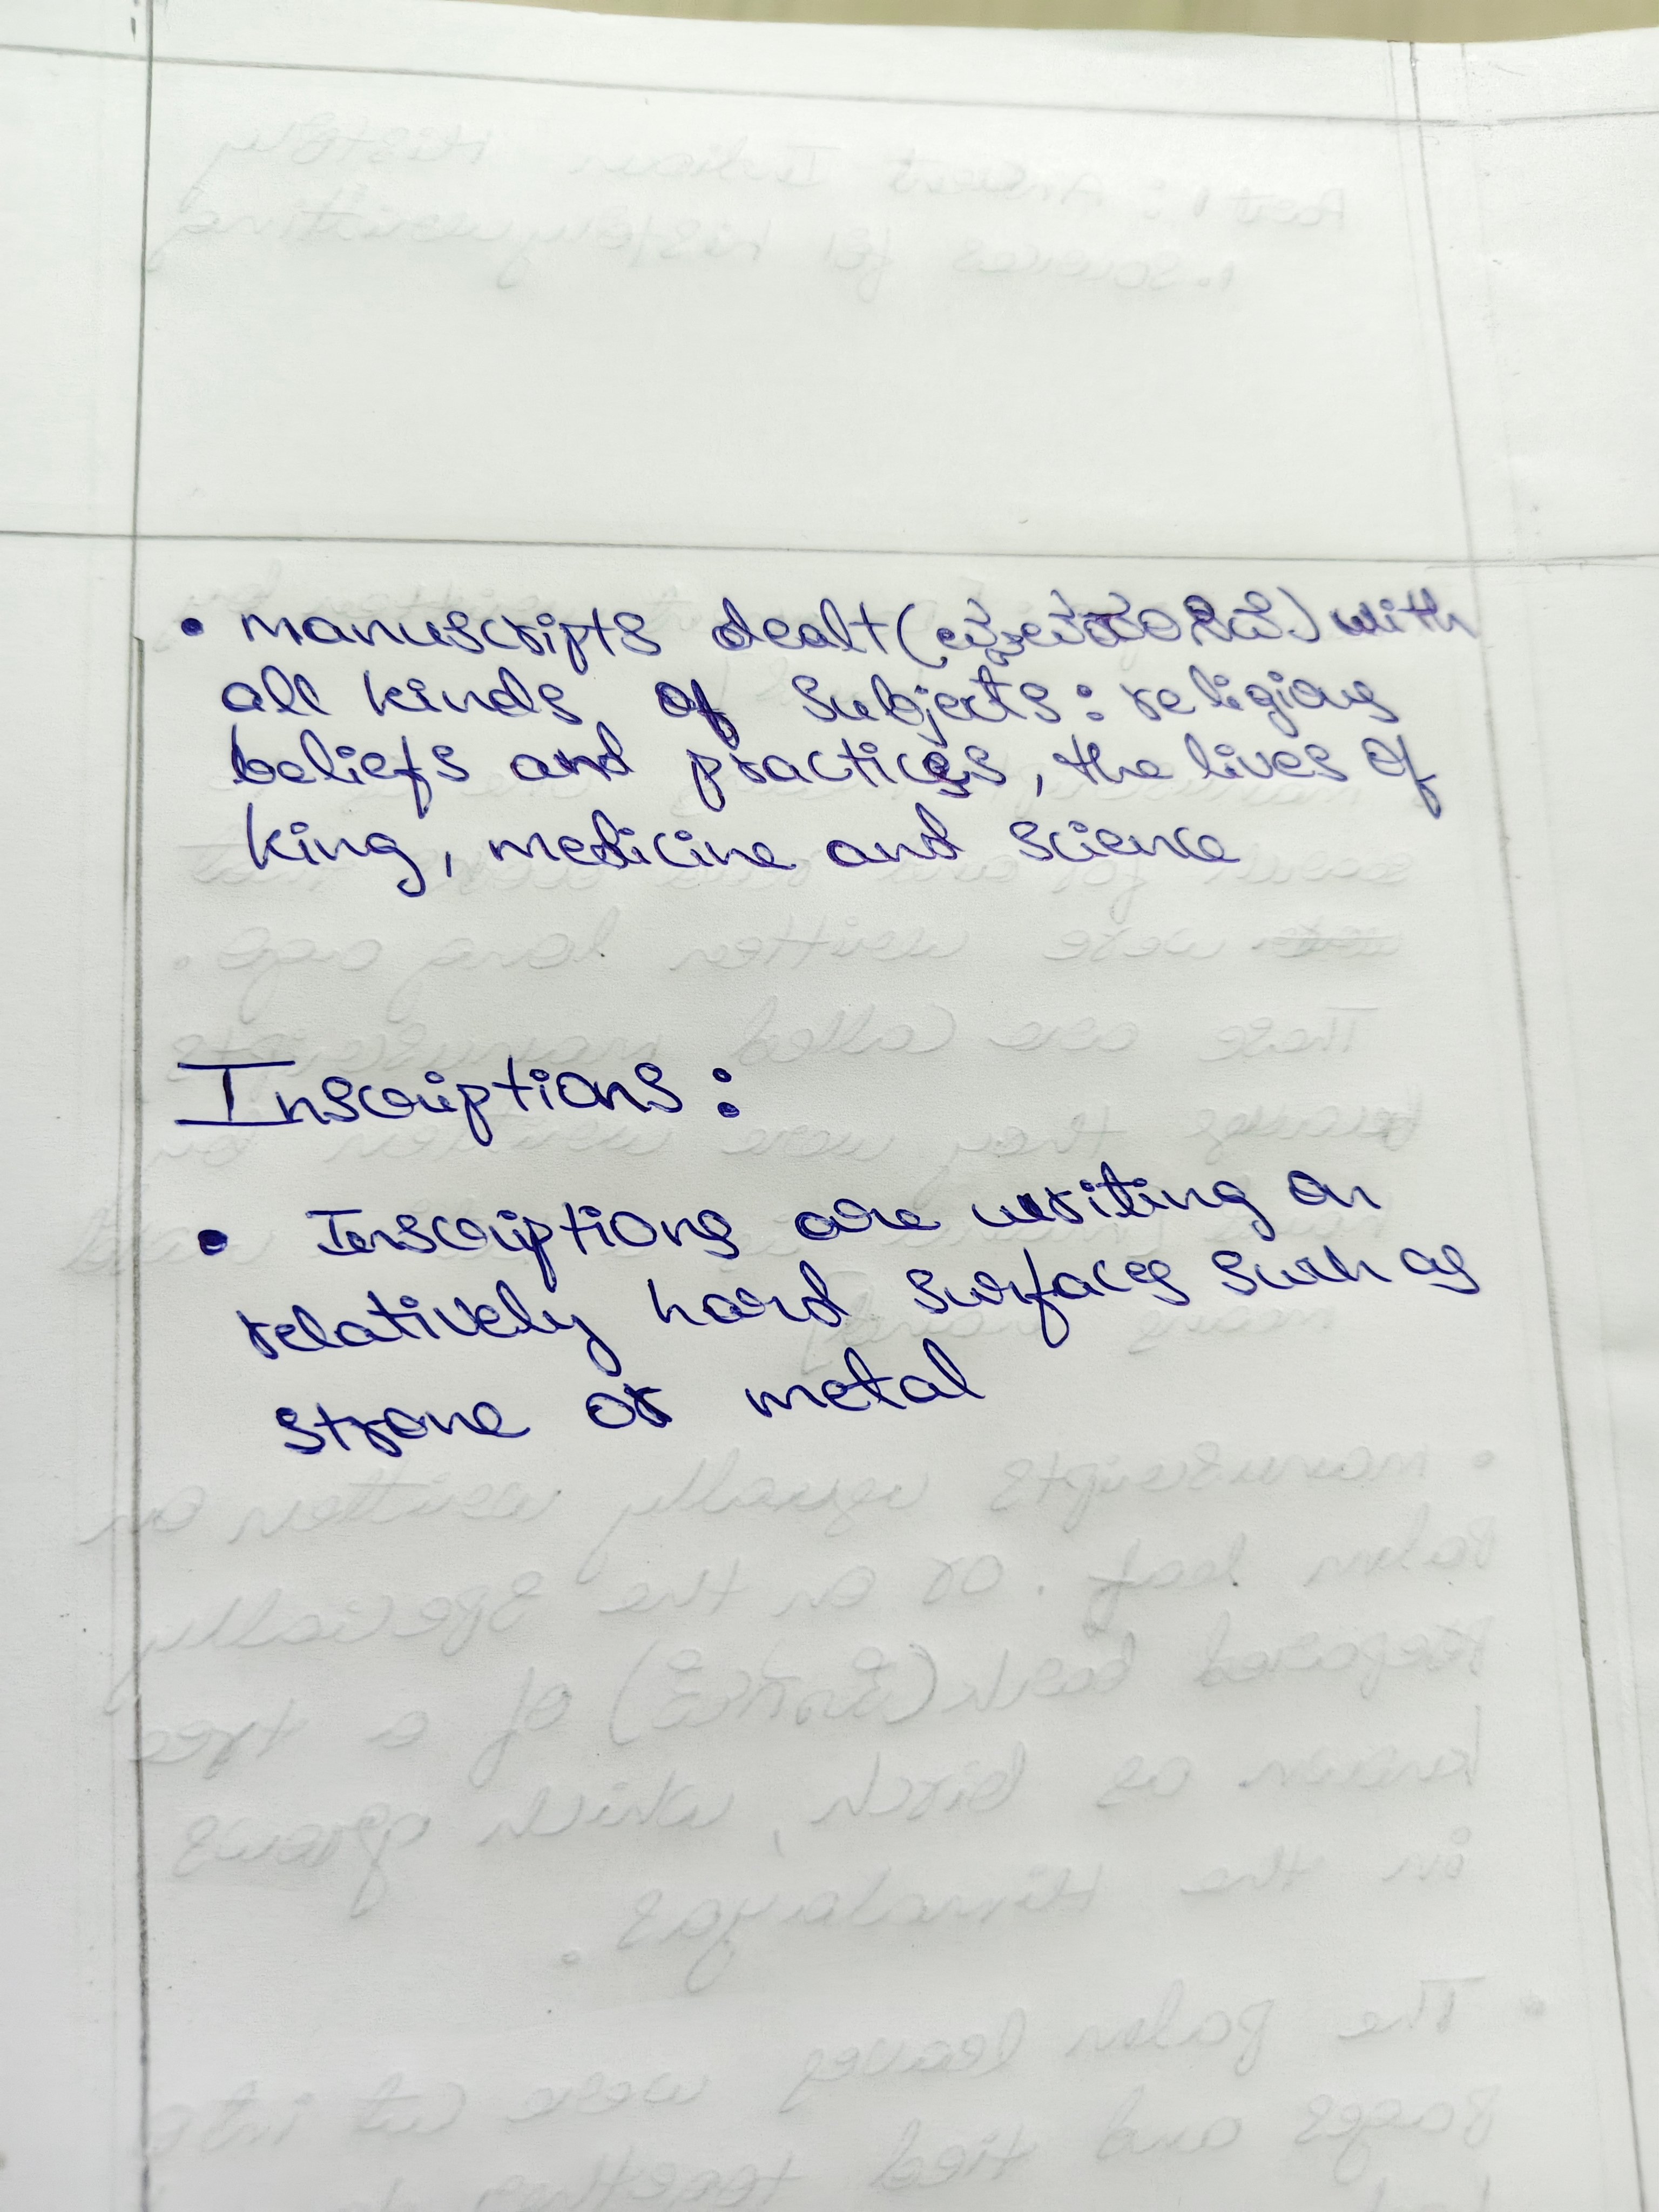 • manuscripts dealt ( ) with
all kinds of subjects: religious
beliefs and practices, the lives of
king, medicine and science
Inscriptions:
• Inscriptions are writing on
relatively hard surfaces such as
strone or metal